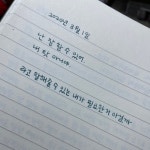 2020년 8월 1일
난 잘 할 수 있어.
내 탓 아니야
라고 말해줄 수 있는 내가 필요한거 아닐까